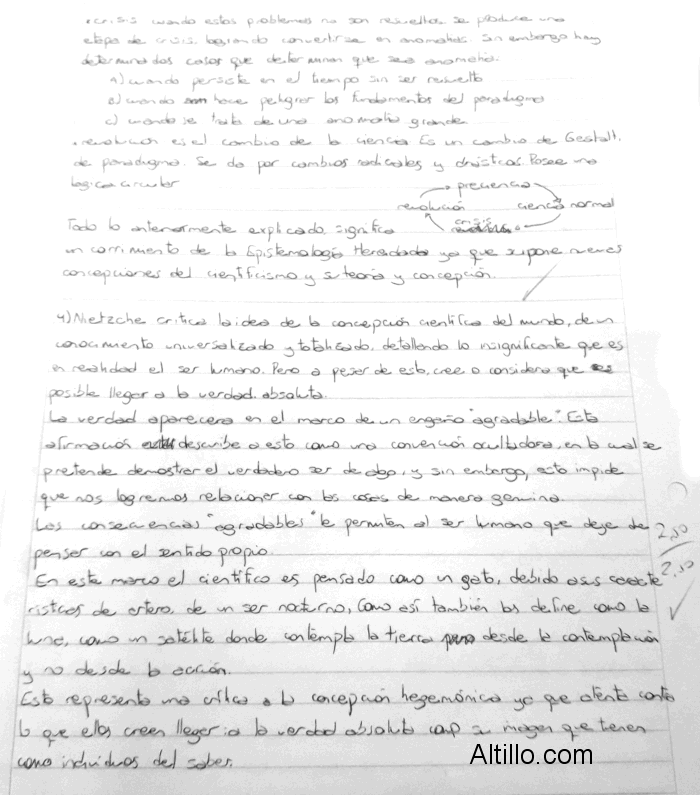 .crisis cuando estos problemas no son resueltos se produce una
etapa de crisis, logrando convertirse en anomalías. Sin embargo hay
determinados casos que determinan que sea anomalía:
a) cuando persiste en el tiempo sin ser resuelto
b) cuando hace peligrar los fundamentos del paradigma
c) cuando se trata de una anomalía grande
.revolución es el cambio de la ciencia. Es un cambio de Gestalt,
de paradigma. Se da por cambios radicales y drásticos. Posee una
lógica circular
preciencia
revolución ciencia normal
crisis
Todo lo anteriormente explicado, significa
un corrimiento de la Epistemología Heredada ya que supone nuevas
concepciones del cientificismo y su teoría y concepción.
4) Nietzche critica la idea de la concepción científica del mundo, de un
conocimiento universalizado y totalizado, detallando lo insignificante que es
en realidad el ser humano. Pero a pesar de esto, cree o considera que es
posible llegar a la verdad absoluta.
La verdad aparecera en el marco de un engaño "agradable". Esta
afirmación describe a esto como una convención ocultadora, en la cual se
pretende demostrar el verdadero ser de algo, y sin embargo, esto impide
que nos logremos relacionar con las cosas de manera genuina.
Las consecuencias "agradables" le permiten al ser humano que deje de
pensar con el sentido propio.
2,50
2,50
En este marco el científico es pensado como un gato, debido a sus caracte
rísticas de artero, de un ser nocturno, Como así también los define como la
luna, como un satélite donde contempla la tierra desde la contemplación
y no desde la acción.
Esto representa una crítica a la concepción hegemónica ya que atenta contra
lo que ellos creen llegar a la verdad absoluta con su imagen que tienen
como individuos del saber.
Altillo.com